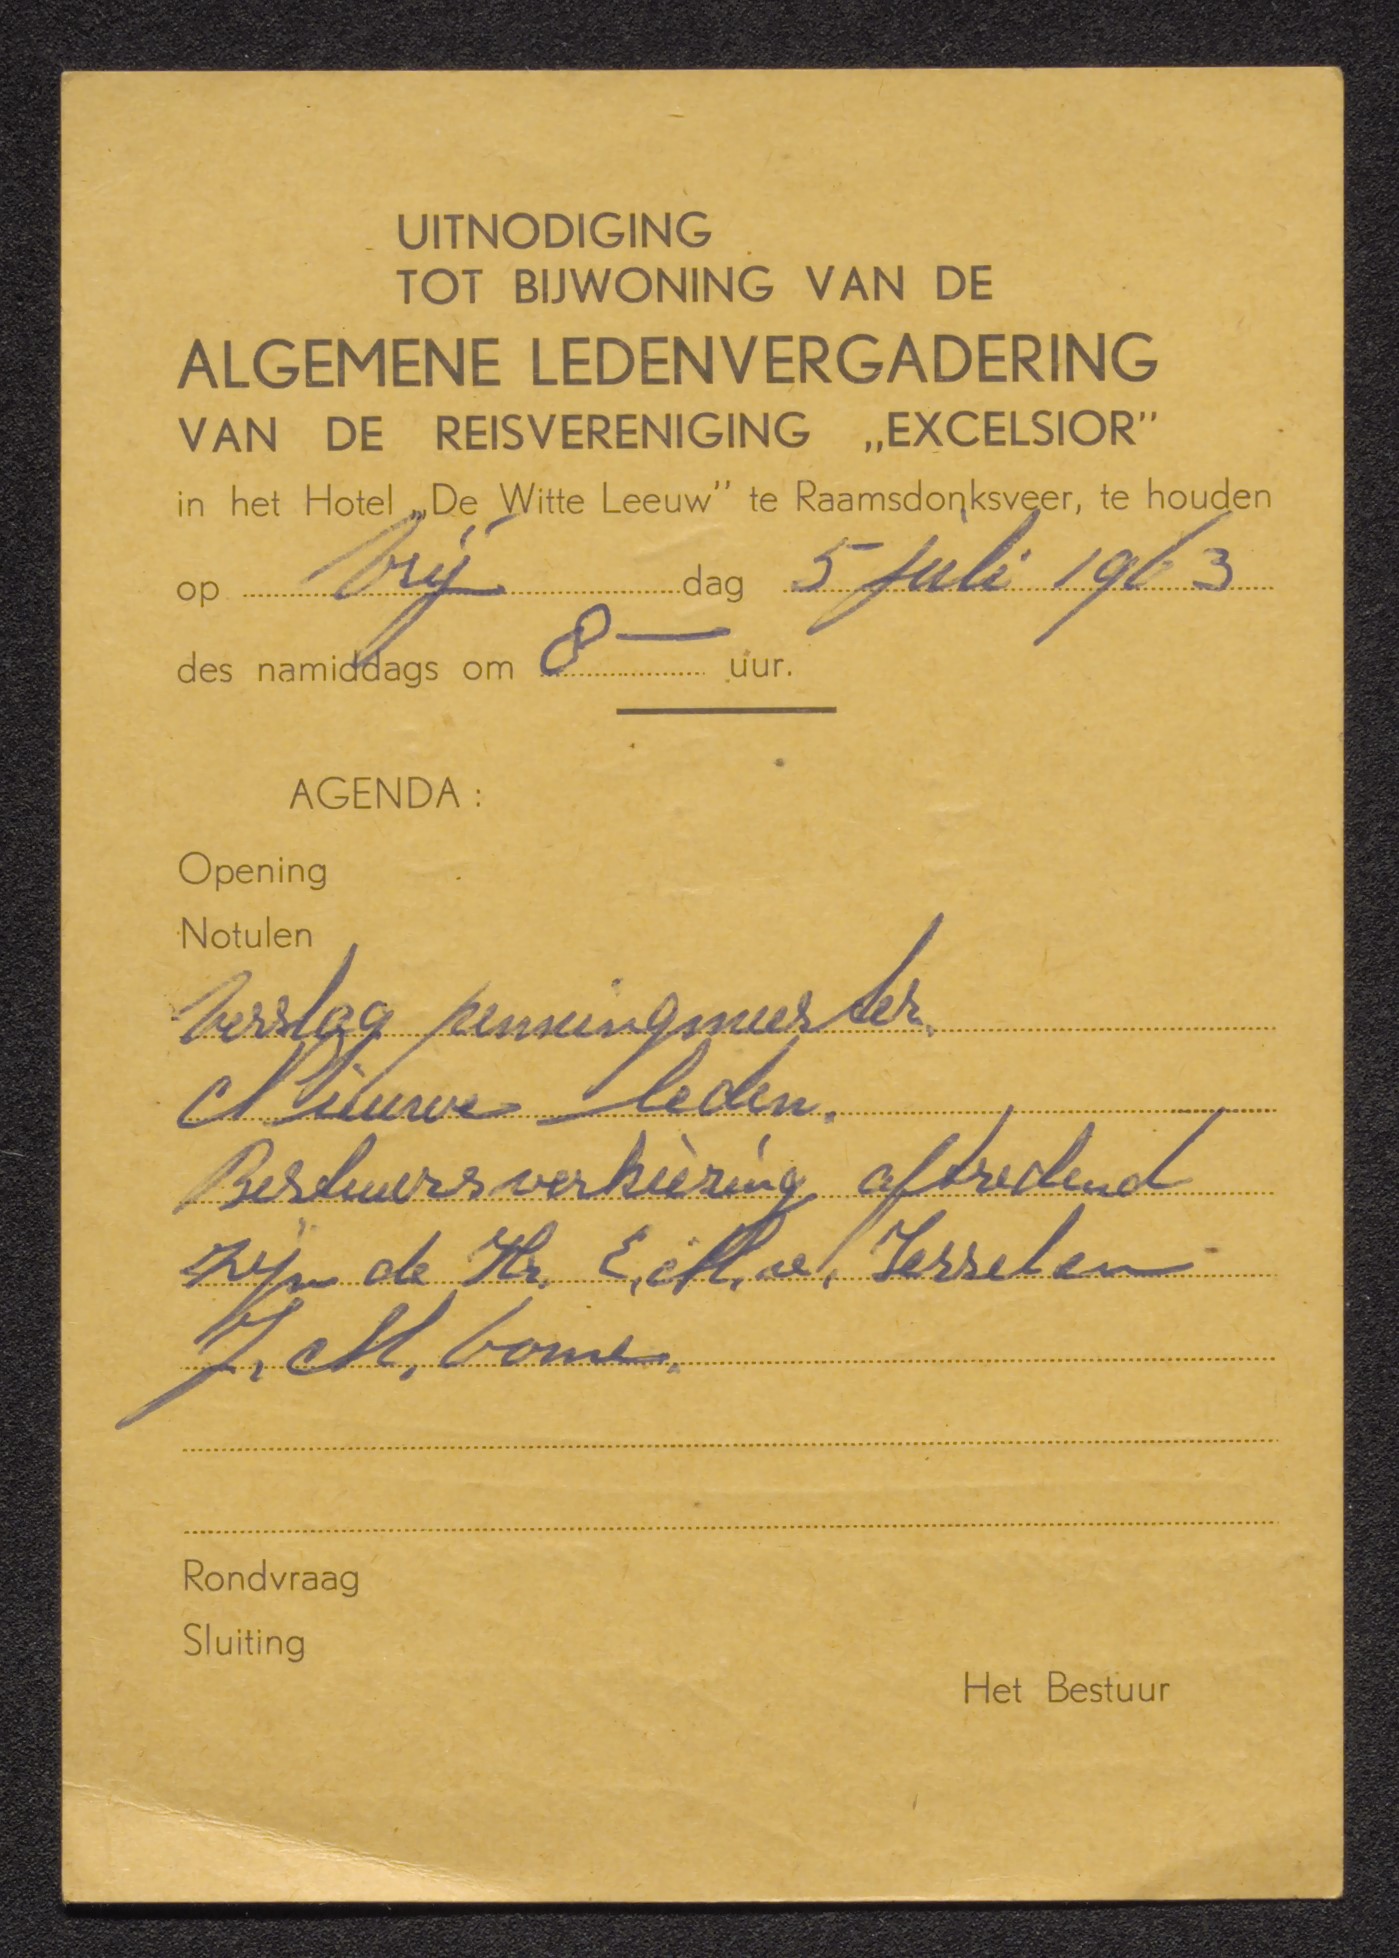 UITNODIGING
TOT BIJWONING VAN DE
ALGEMENE LEDENVERGADERING
VAN DE REISVERENIGING „EXCELSIOR"
in het Hotel „De Witte Leeuw" te Raamsdonksveer, te houden
op vrij dag 5 juli 1963
des namiddags om 8 — uur.
AGENDA :
Opening
Notulen
Verslag penningmeester.
Nieuwe leden.
Bestuursverkiezing aftredend
zijn de Hr. E. M. v.
J. M.
Rondvraag
Sluiting
Het Bestuur